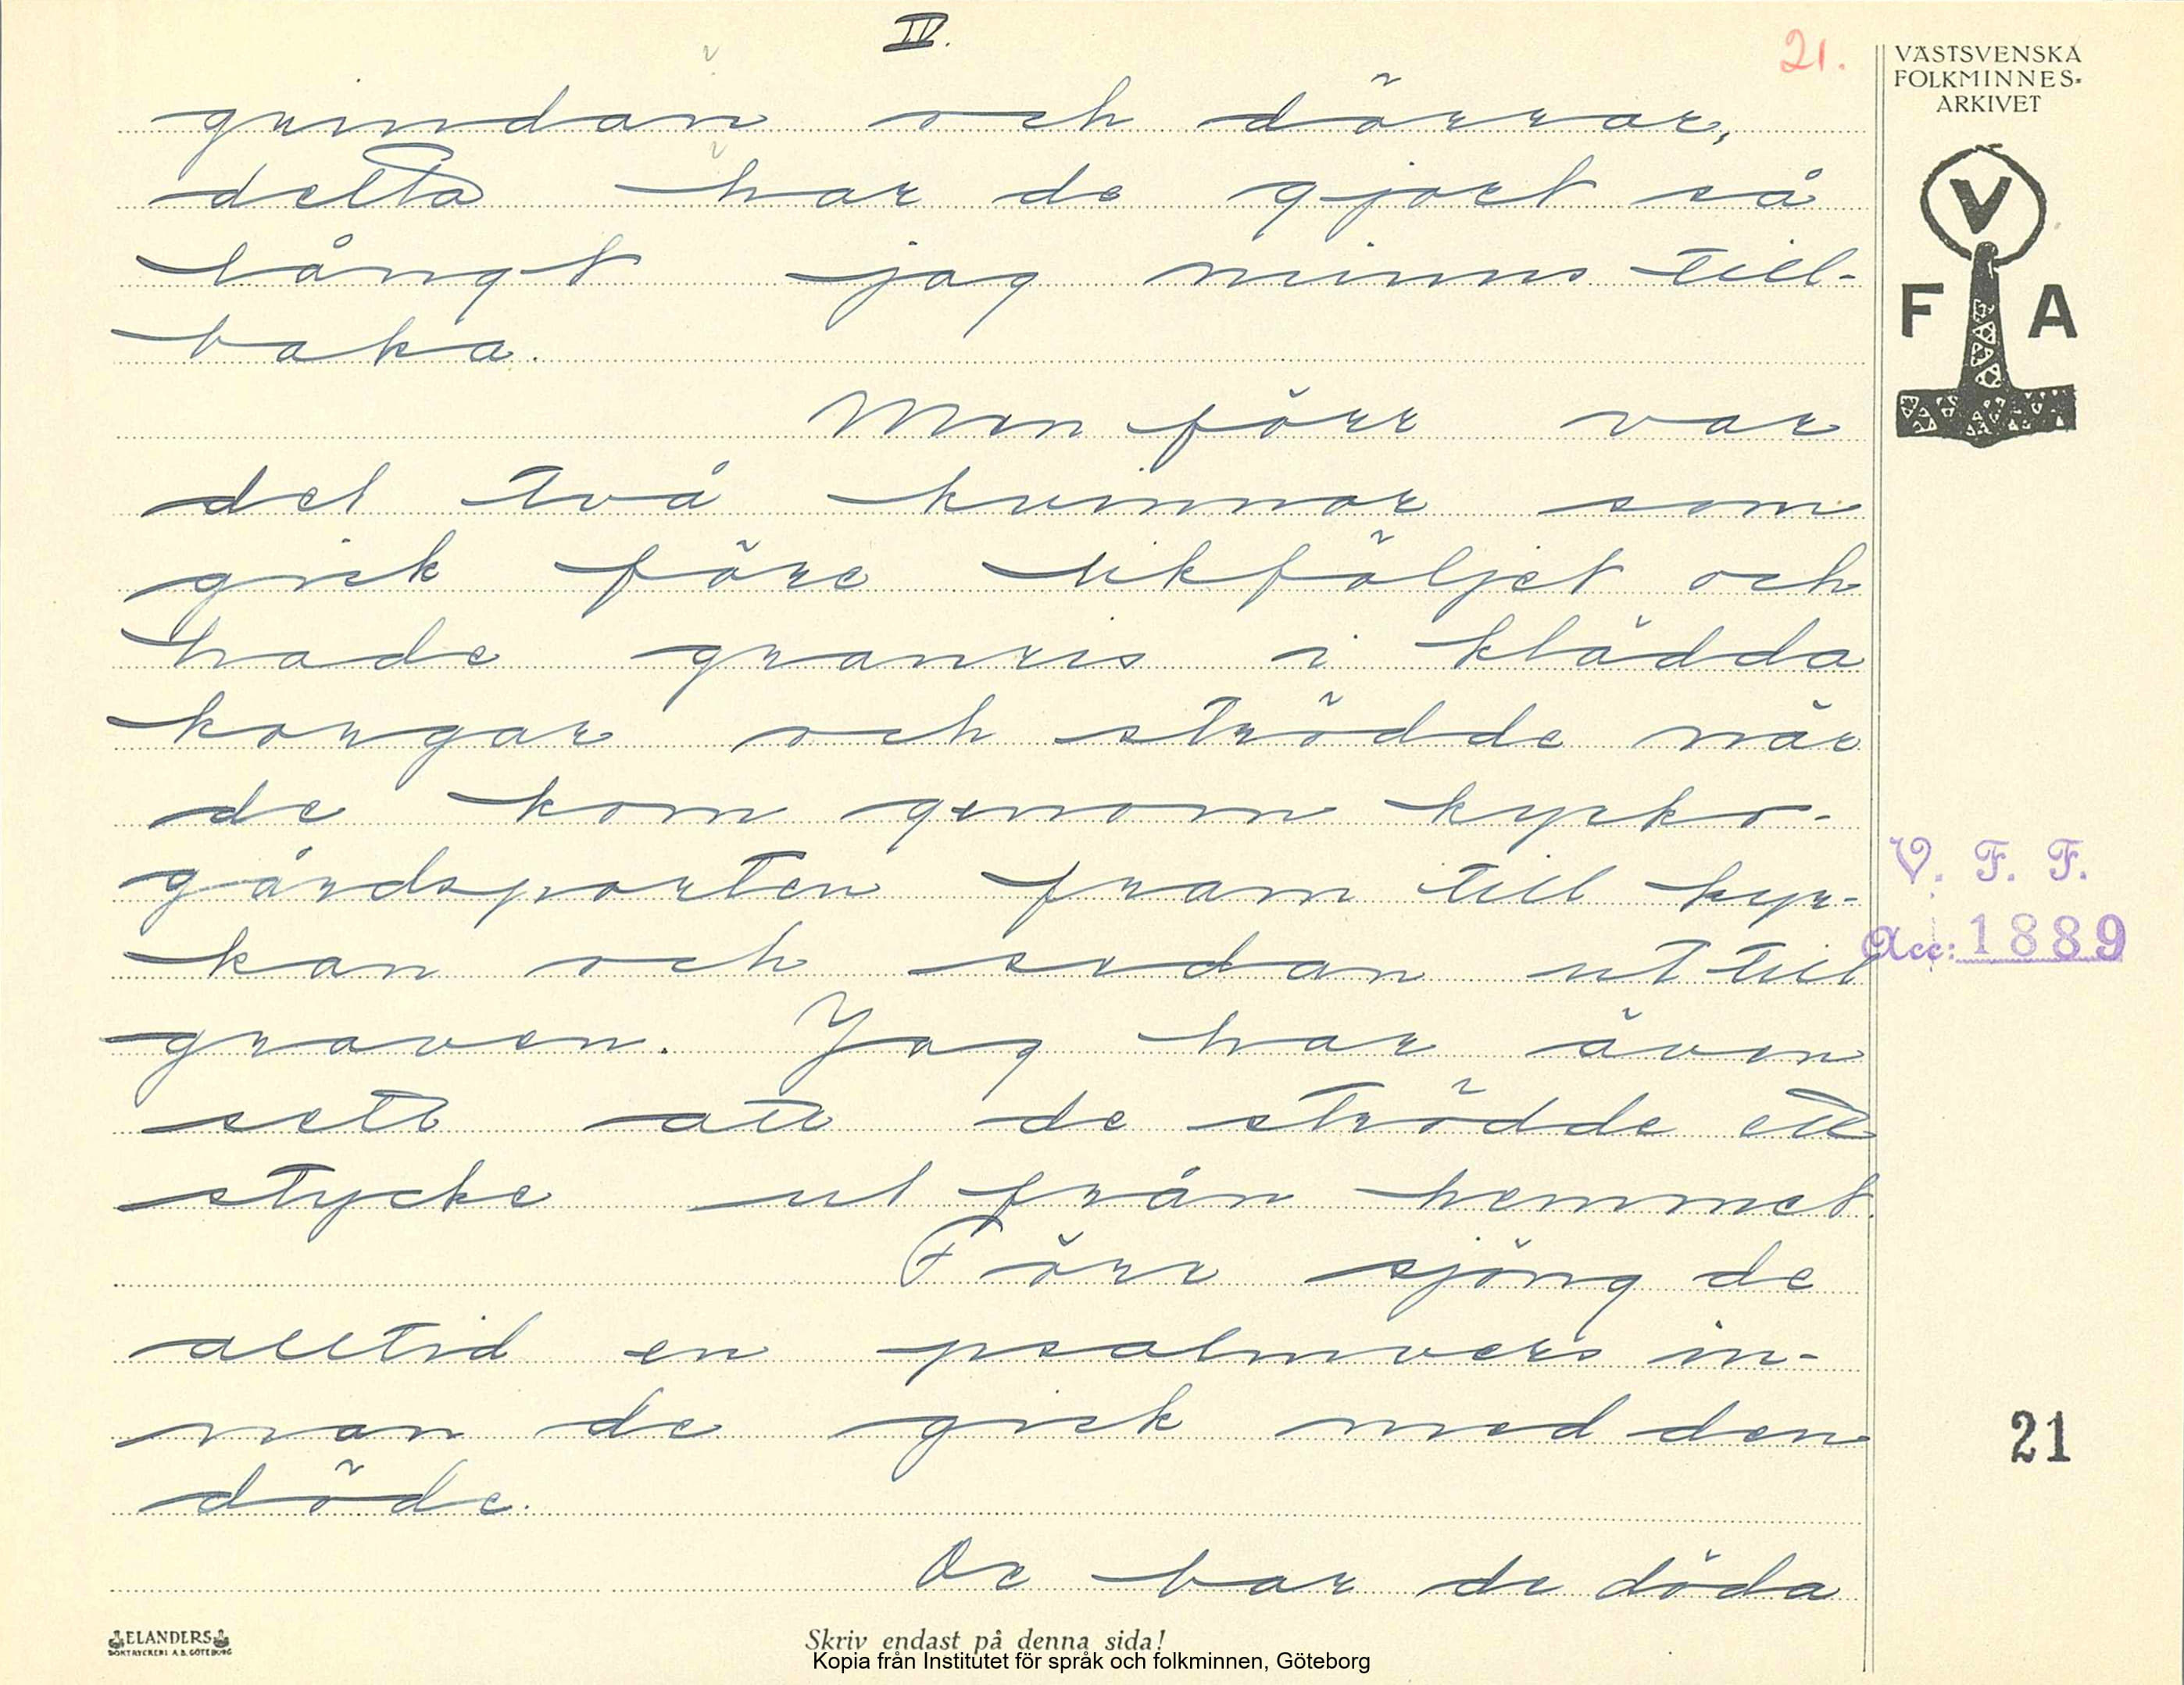 IV.
21.
VÄSTSVENSKA
FOLKMINNES-
ARKIVET
V
F A
grindän och dörrar,
detta har de gjort så
långt jag minns till-
baka.
Men förr var
det två kvinnor som
gick före likföljet och
hade granris i klädda
korgar och strödde när
de kom genom kyrko-
gårdsporten fram till kyr-
kan och sedan ut till
graven. Jag har även
sett att de strödde ett
stycke ut från hemmet.
Förr sjöng de
alltid en psalmvers in-
nan de gick med den
döde.
De bar de döda
V. F. F.
Acc: 1889
21
ELANDERS
BOKTRYCKERI A.B. GÖTEBORG
Skriv endast på denna sida!
Kopia från Institutet för språk och folkminnen, Göteborg